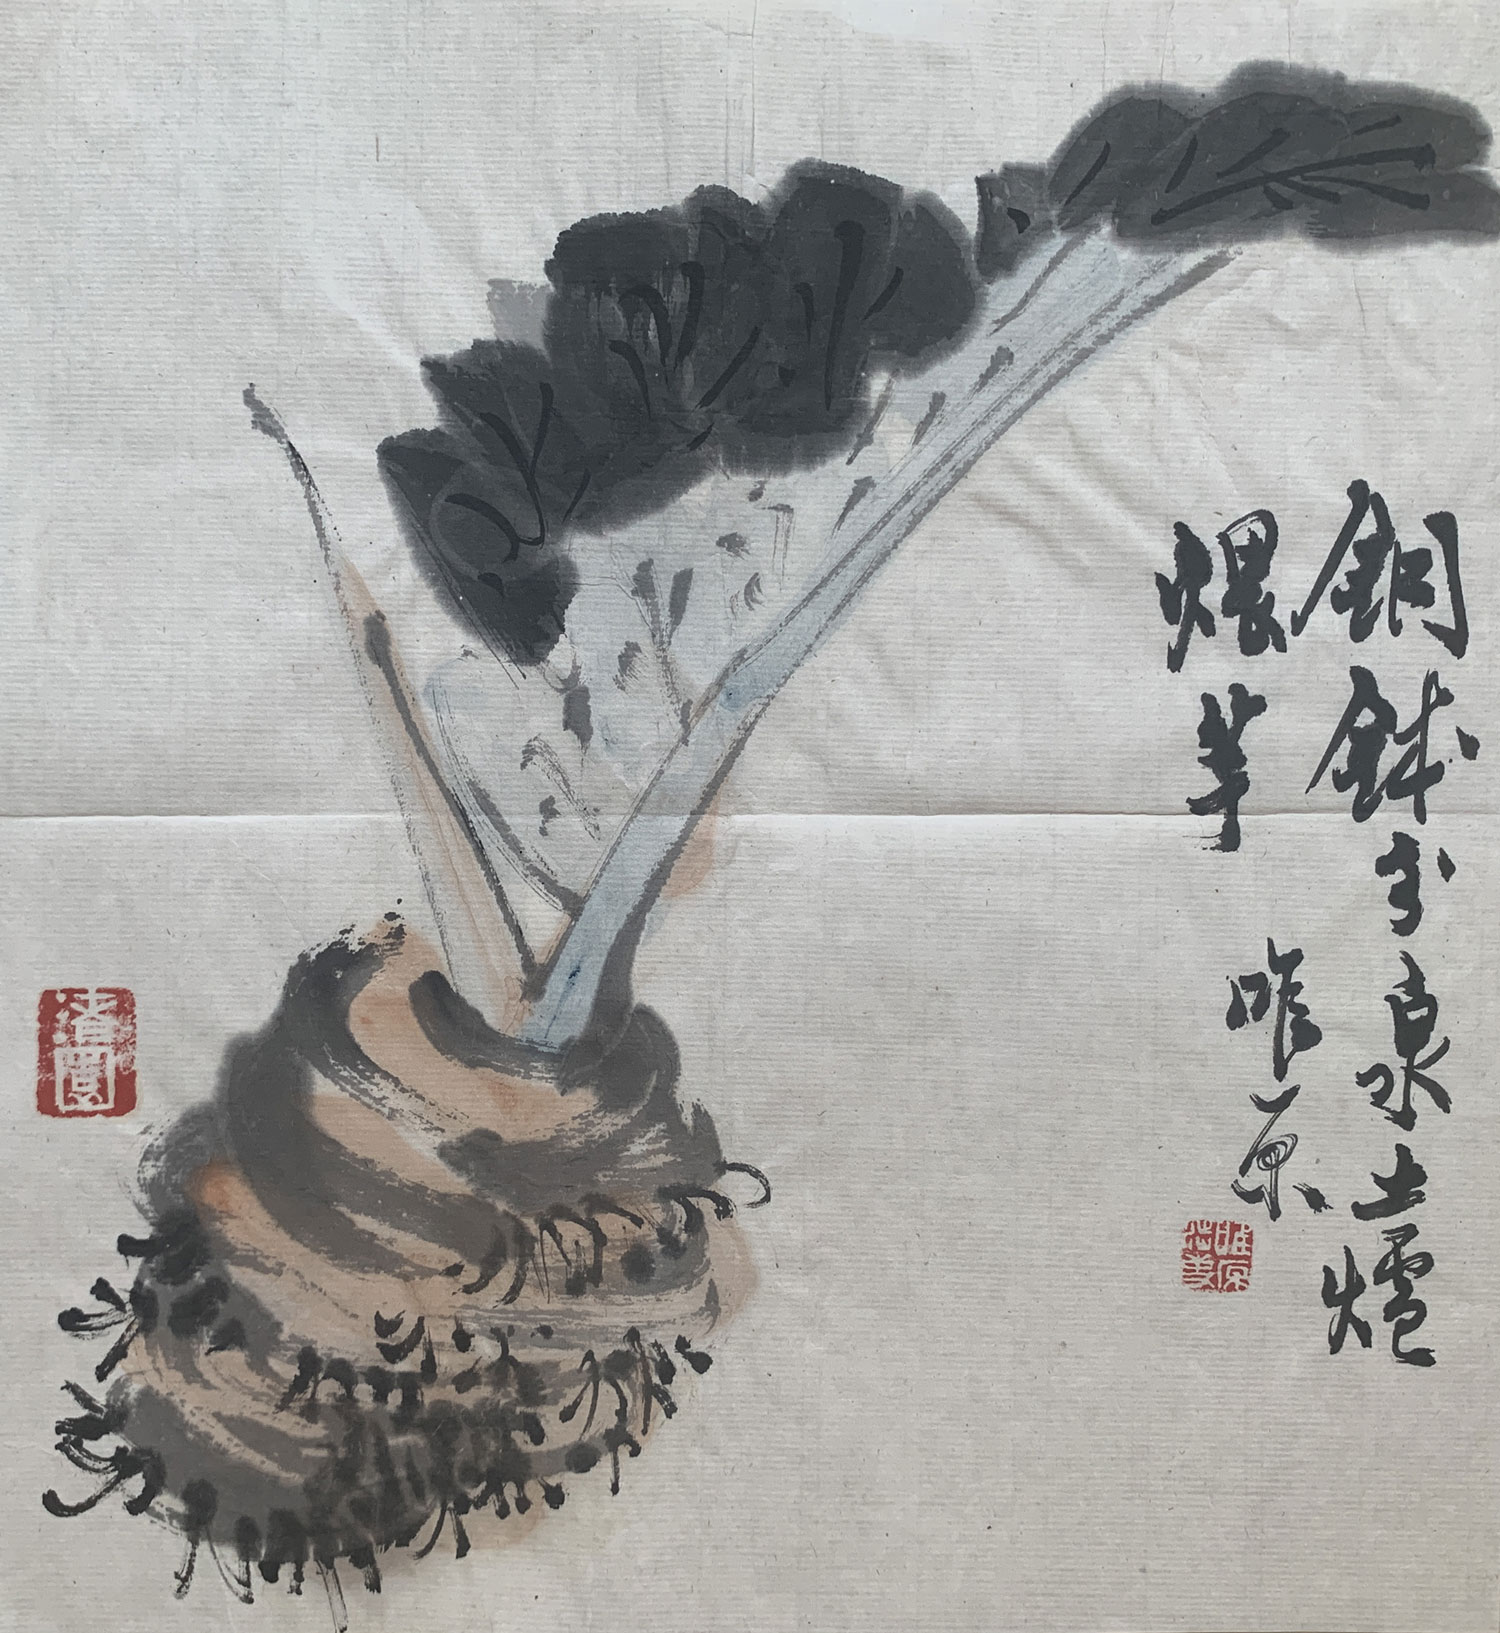 銅鉢分泉水土爐
煨芋
唯原
清園
唯原